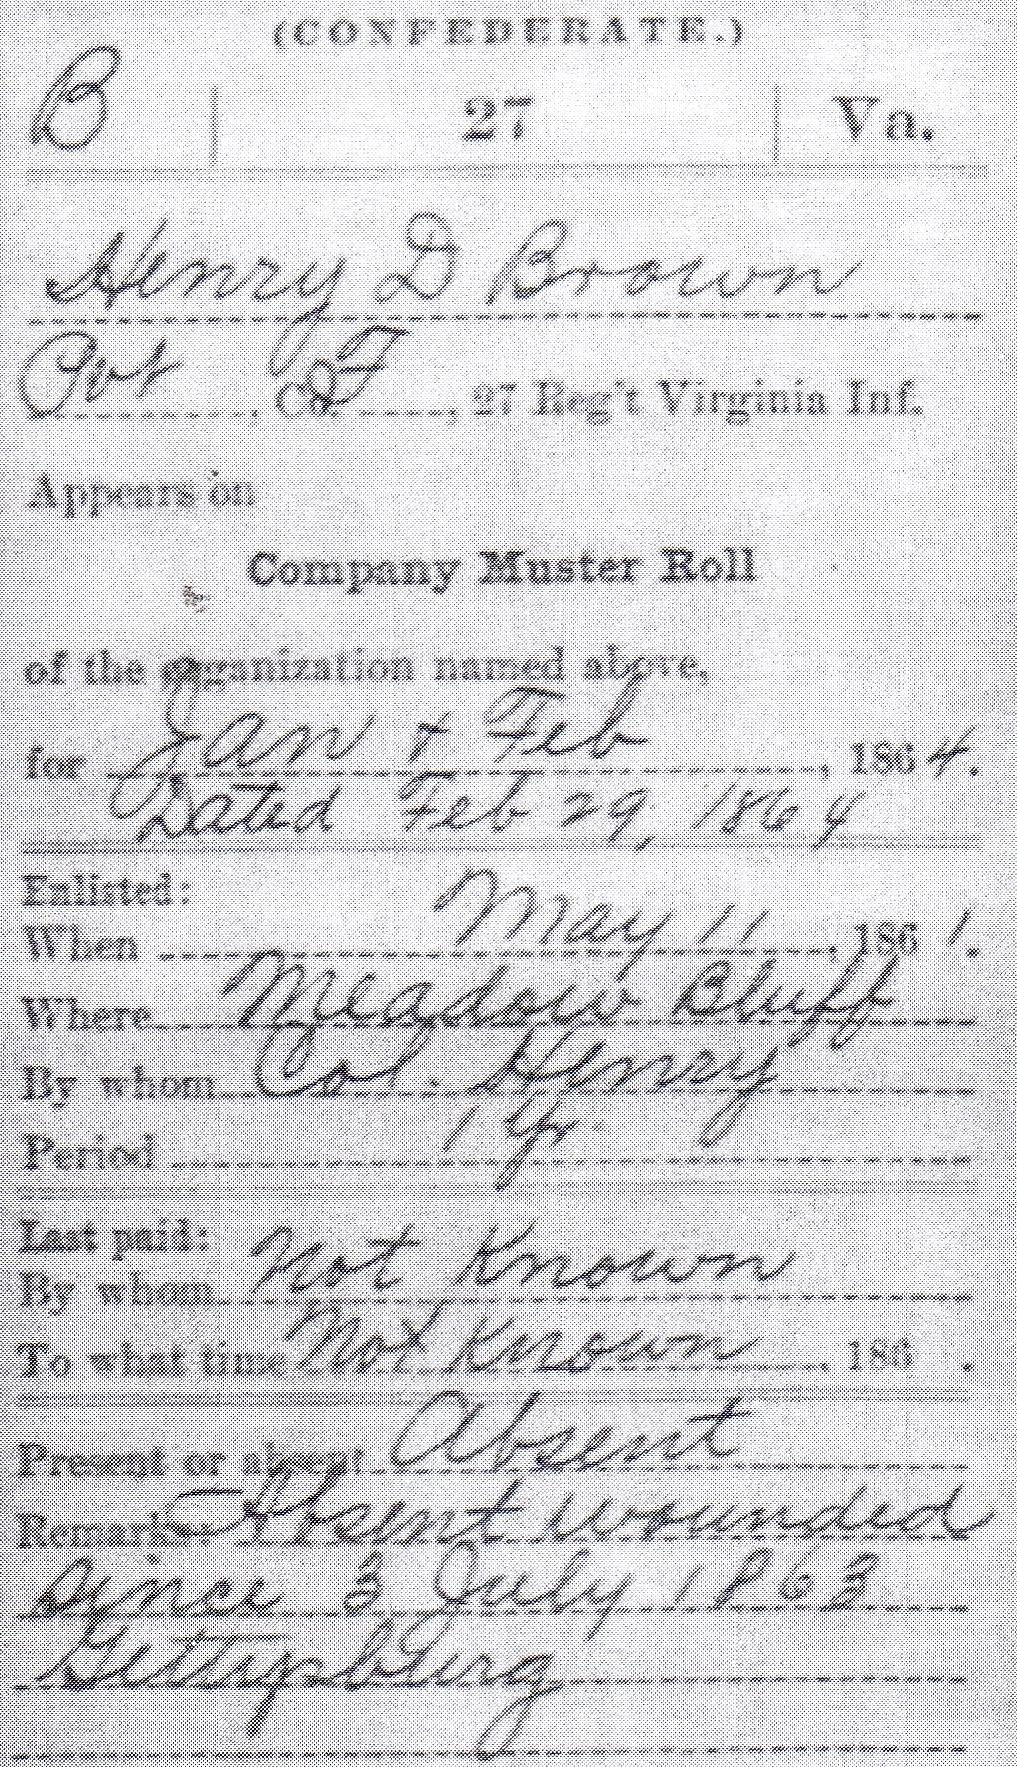 (CONFEDERATE.)
B | 27 | Va.
Henry D Brown
Pvt, Co F, 27 Reg't Virginia Inf.
Appears on
Company Muster Roll
of the organization named above,
for Jan & Feb, 1864.
Dated Feb 29, 1864
Enlisted:
When May 11, 1861.
Where Meadow Bluff
By whom Col. Henry
Period 1 yr
Last paid:
By whom Not Known
To what time Not Known, 186 .
Present or absent Absent
Remarks: Absent wounded
since 3 July 1863
Gettysburg